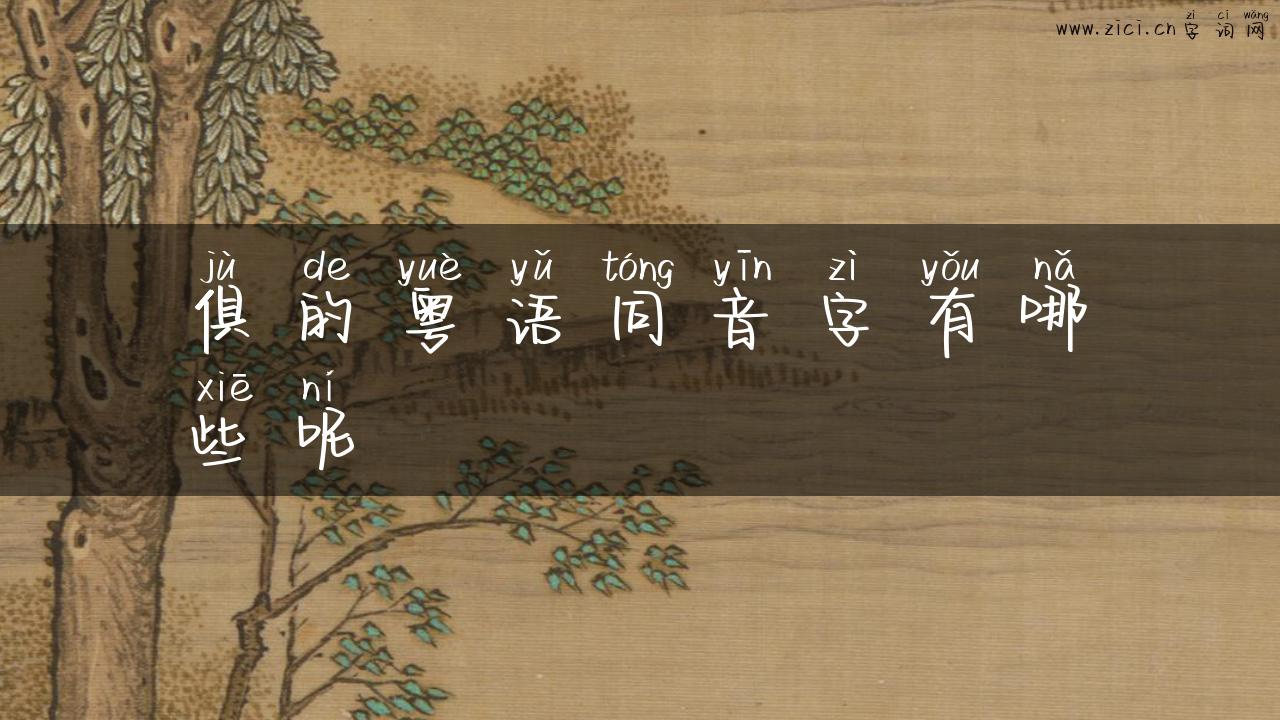 zì cí wǎng
www.zici.cn 字词网
jù de yuè yǔ tóng yīn zì yǒu nǎ
俱的粤语同音字有哪
xiē ní
些呢